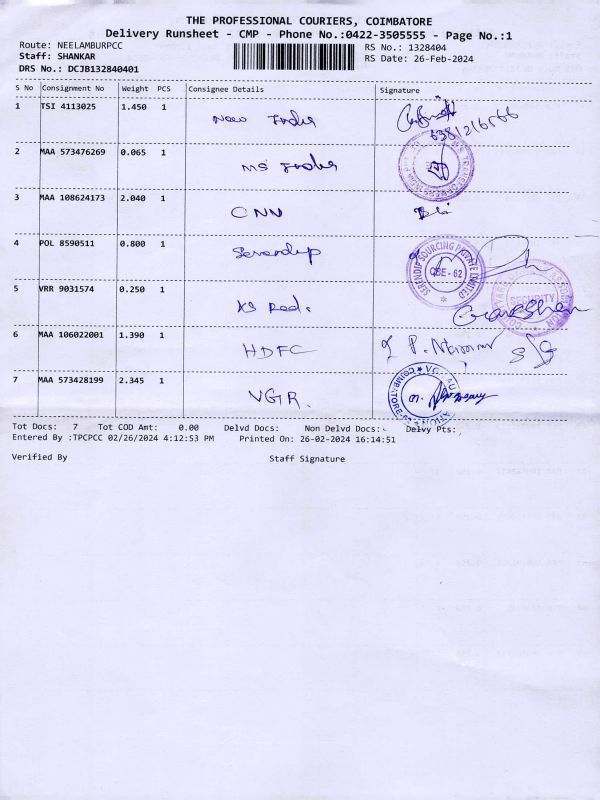 THE PROFESSIONAL COURIERS, COIMBATORE
Delivery Runsheet - CMP - Phone No.:0422-3505555 - Page No.:1
Route: NEELAMBURPCC RS No.: 1328404
Staff: SHANKAR RS Date: 26-Feb-2024
DRS No.: DCJB132840401
S No Consignment No Weight PCS Consignee Details Signature
1 TSI 4113025 1.450 1 New India
6381216566
2 MAA 573476269 0.065 1 MS India
3 MAA 108624173 2.040 1 CNN
4 POL 8590511 0.800 1 Serendip
SERENDIP SOURCING PRIVATE LIMITED
CBE - 62
5 VRR 9031574 0.250 1 KS
SECURITY
6 MAA 106022001 1.390 1 HDFC
7 MAA 573428199 2.345 1 VGR.
Tot Docs: 7 Tot COD Amt: 0.00 Delvd Docs: Non Delvd Docs: Delvy Pts:
Entered By :TPCPCC 02/26/2024 4:12:53 PM Printed On: 26-02-2024 16:14:51
Verified By Staff Signature